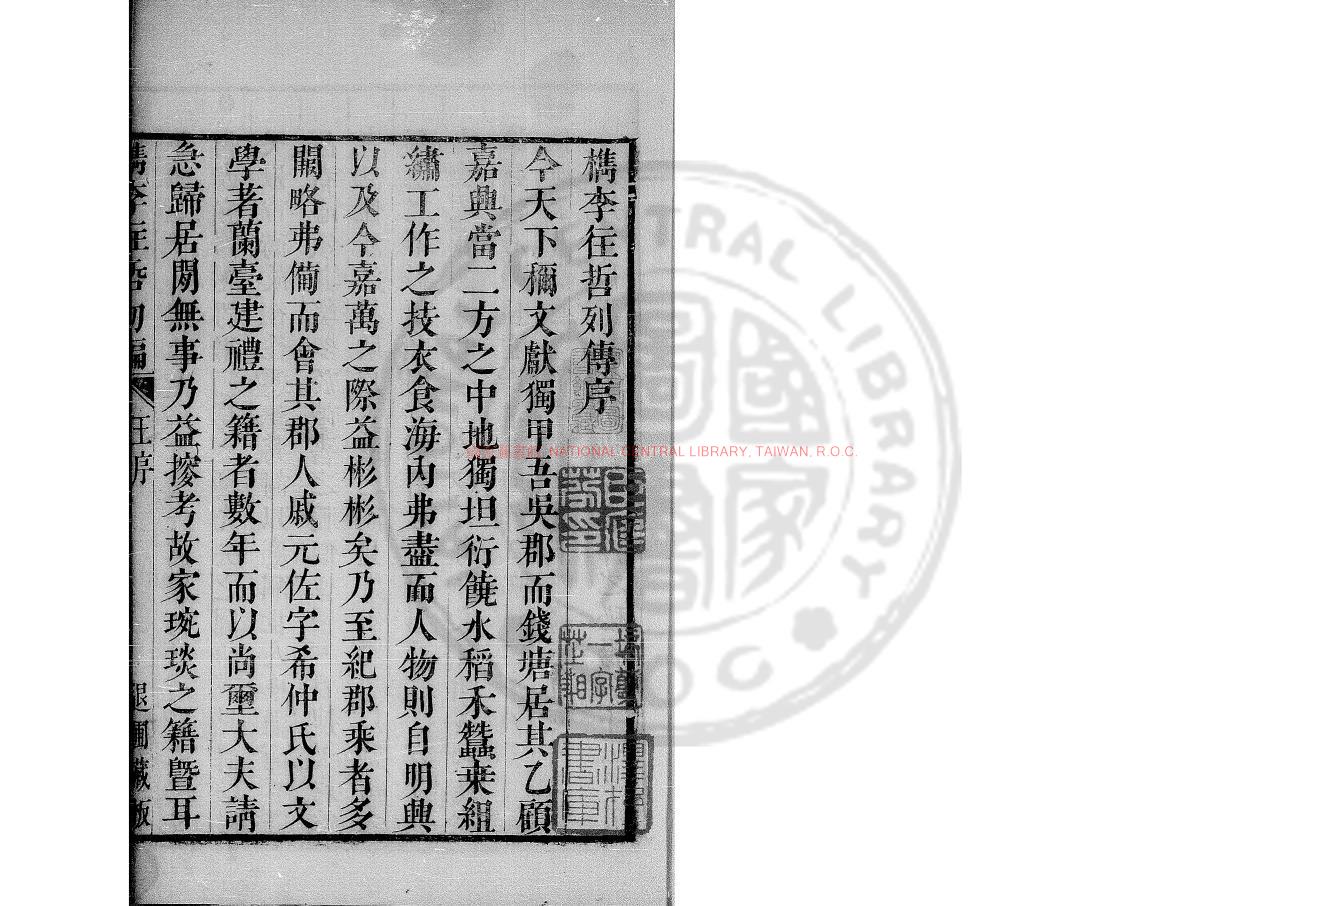 檇李往哲列傳序
今天下稱文獻獨甲吾吳郡而錢塘居其乙顧
嘉興當二方之中地獨坦衍饒水稻禾蠶桒組
繡工作之技衣食海內弗盡而人物則自明興
以及今嘉萬之際益彬彬矣乃至紀郡乘者多
闕略弗備而會其郡人戚元佐字希仲氏以文
學著蘭臺建禮之籍者數年而以尚璽大夫請
急歸居閒無事乃益摉考故家琬琰之籍曁耳
檇李往哲初編 王序 退圃藏版
NATIONAL CENTRAL LIBRARY, TAIWAN, R.O.C.
CENTRAL LIBRARY
R.O.C